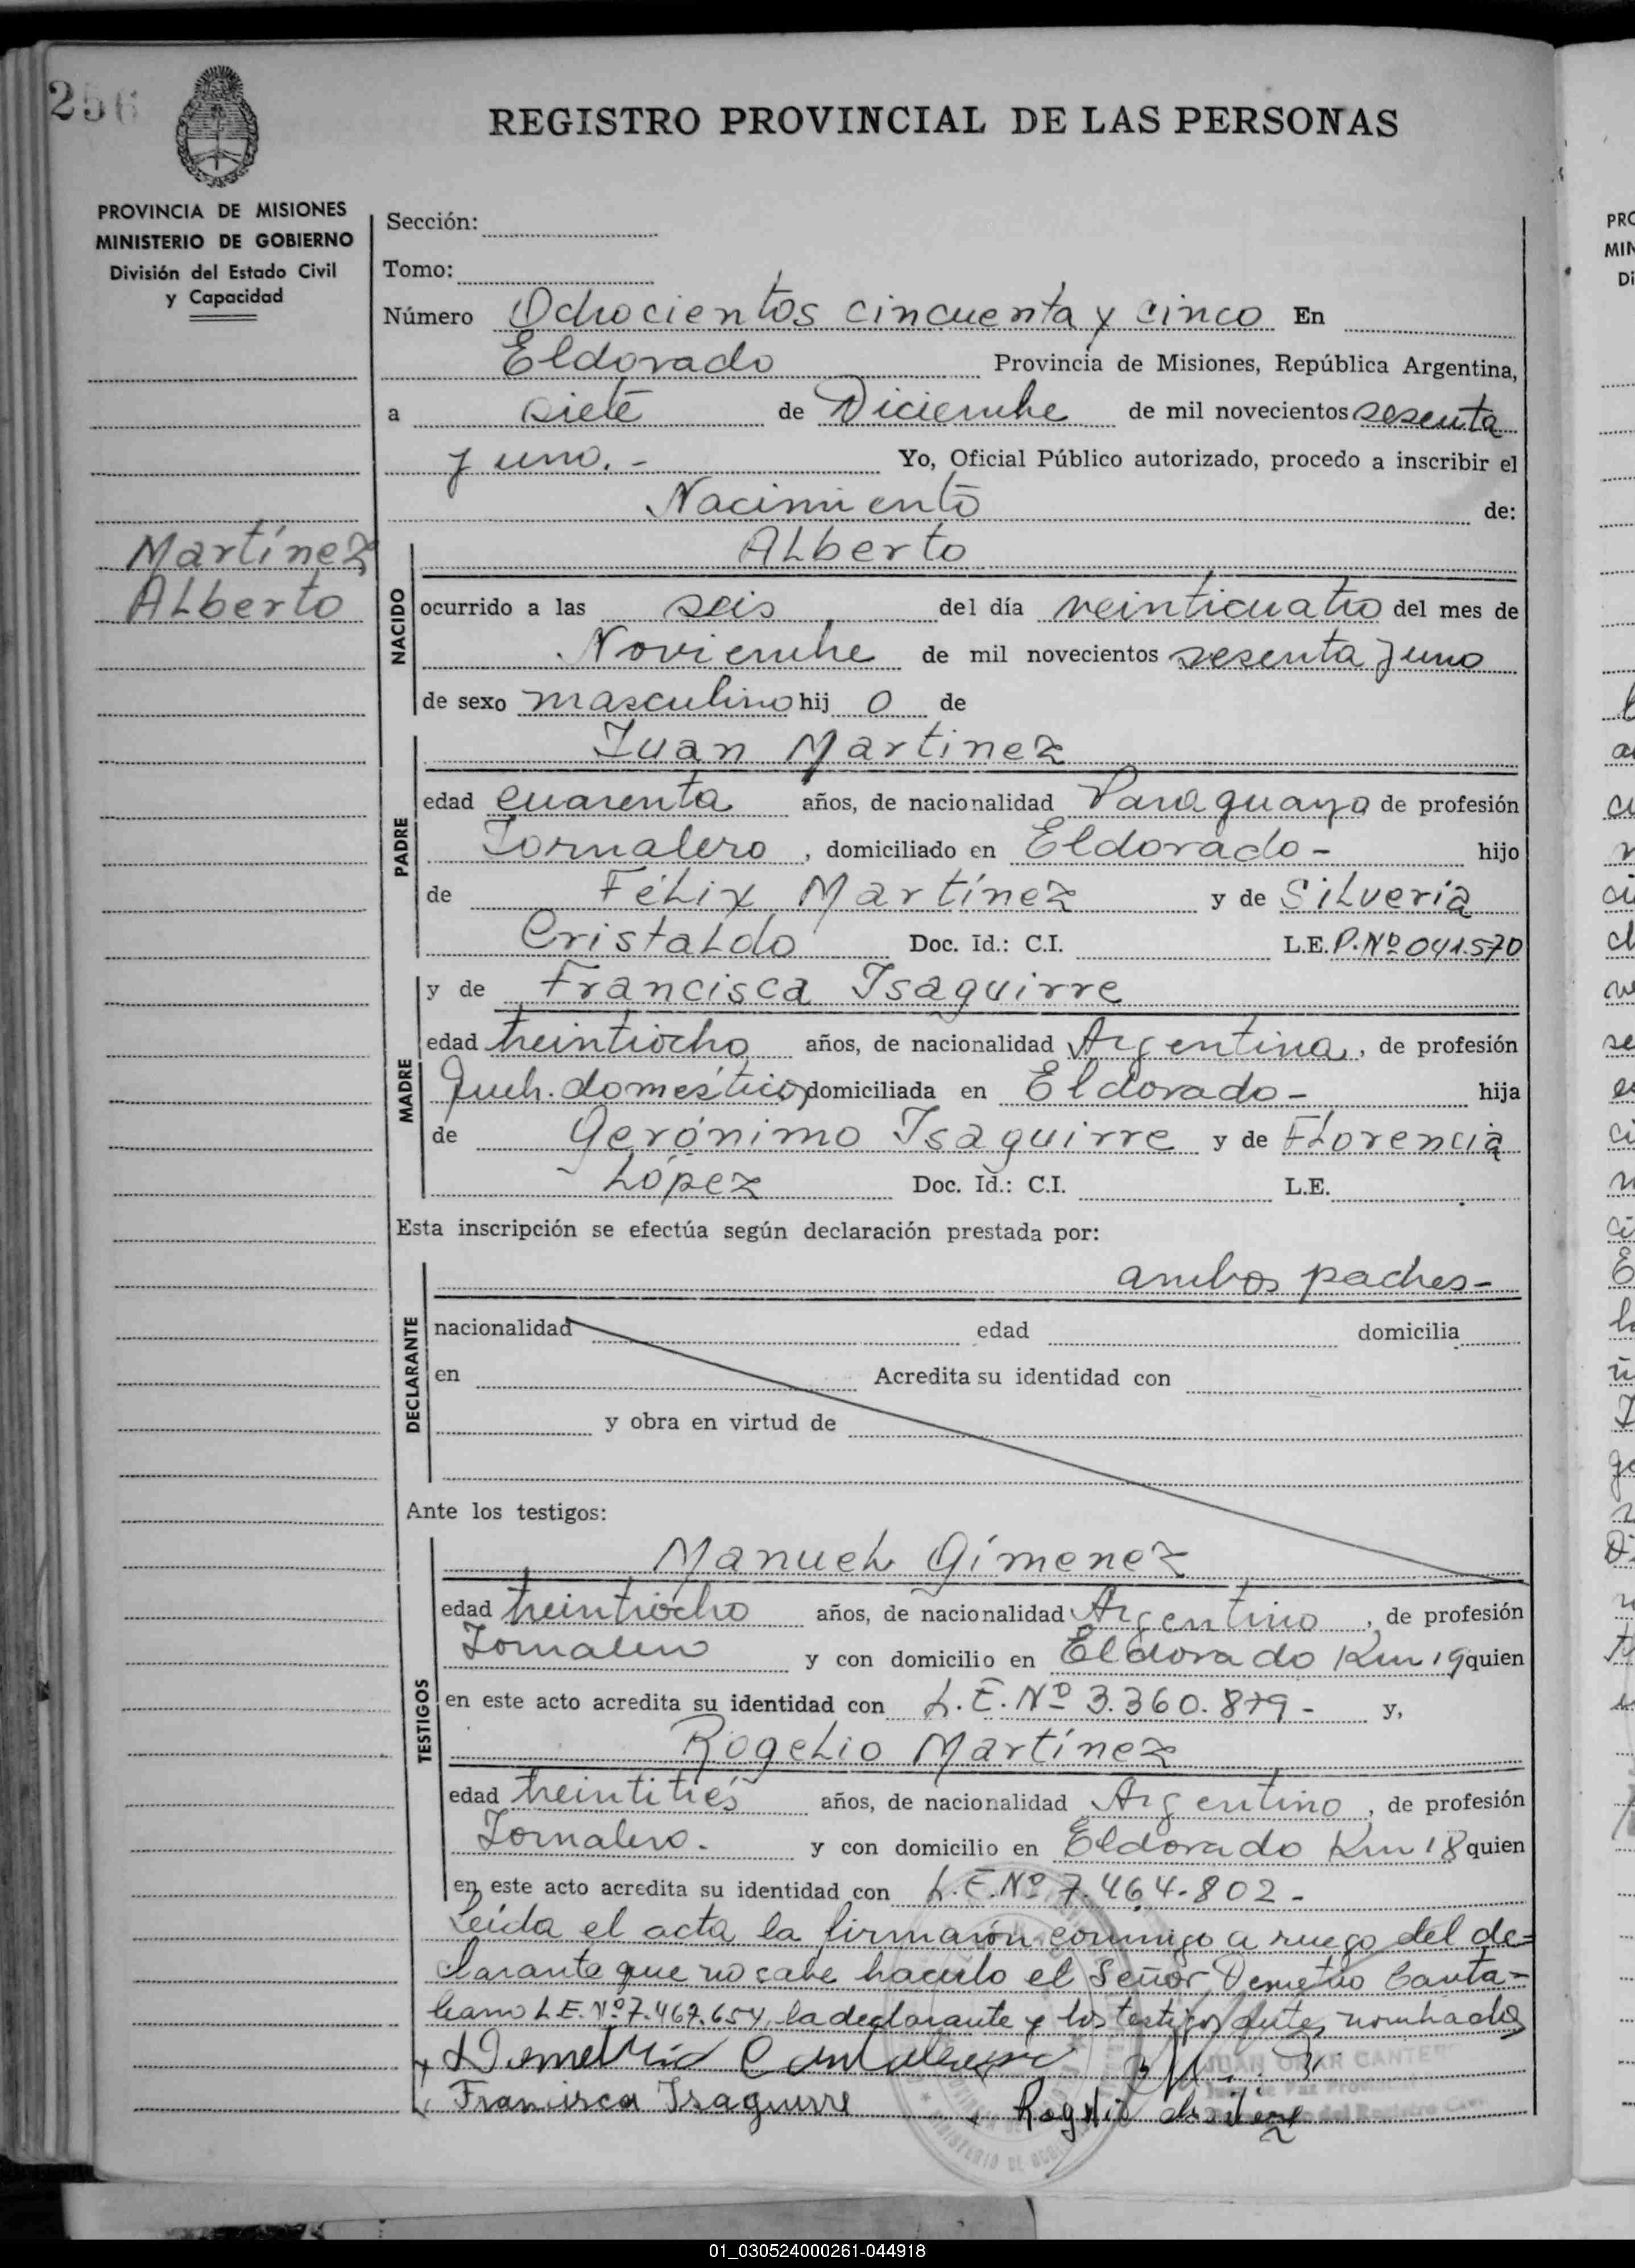 256
REGISTRO PROVINCIAL DE LAS PERSONAS
PROVINCIA DE MISIONES
MINISTERIO DE GOBIERNO
División del Estado Civil
y Capacidad
Martínez
Alberto
Sección:
Tomo:
Número Ochocientos cincuenta y cinco En
Eldorado Provincia de Misiones, República Argentina,
a siete de Diciembre de mil novecientos sesenta
y uno.- Yo, Oficial Público autorizado, procedo a inscribir el
Nacimiento de:
NACIDO
Alberto
ocurrido a las seis del día veinticuatro del mes de
Noviembre de mil novecientos sesenta y uno
de sexo masculino hij o de
PADRE
Juan Martinez
edad cuarenta años, de nacionalidad Paraguaya de profesión
Jornalero, domiciliado en Eldorado- hijo
de Félix Martínez y de Silveria
Cristaldo Doc. Id.: C.I. L.E. P.Nº 041.570
MADRE
y de Francisca Isaguirre
edad treintiocho años, de nacionalidad Argentina, de profesión
Queh. domésticos domiciliada en Eldorado- hija
de Gerónimo Isaguirre y de Florencia
López Doc. Id.: C.I. L.E.
Esta inscripción se efectúa según declaración prestada por:
DECLARANTE
ambos padres-
nacionalidad edad domicilia
en Acredita su identidad con
y obra en virtud de
Ante los testigos:
TESTIGOS
Manuel Gímenez
edad treintiocho años, de nacionalidad Argentino, de profesión
Jornalero y con domicilio en Eldorado Km 19 quien
en este acto acredita su identidad con L.E. Nº 3.360.879- y,
Rogelio Martínez
edad treintitrés años, de nacionalidad Argentino, de profesión
Jornalero. y con domicilio en Eldorado Km 18 quien
en este acto acredita su identidad con L.E. Nº 7.464.802-
Leída el acta la firmaron conmigo a ruego del de=
clarante que no sabe hacerlo el Señor Demetrio Canta=
L.E. Nº 7.467.654, la declarante y los testigos antes nombrados
Demetrio
JUAN OMAR CANTER
Francisca Isaguirre Rogelio
01_030524000261-044918